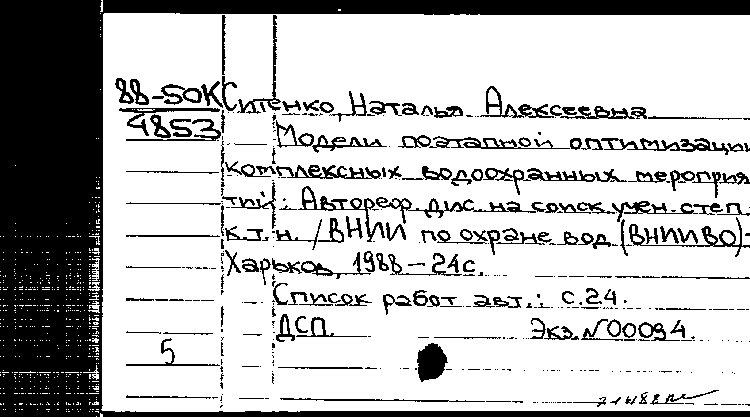 88-50К Ситенко, Наталья Алексеевна
4853
Модели поэтапной оптимизации
комплексных водоохранных мероприя
тий: Автореф. дис. на соиск. учен. степ.
к.т.н. /ВНИИ по охране вод (ВНИИВО)-
Харьков, 1988 – 24с.
Список работ авт.: с.24.
ДСП. Экз. №00094.
5